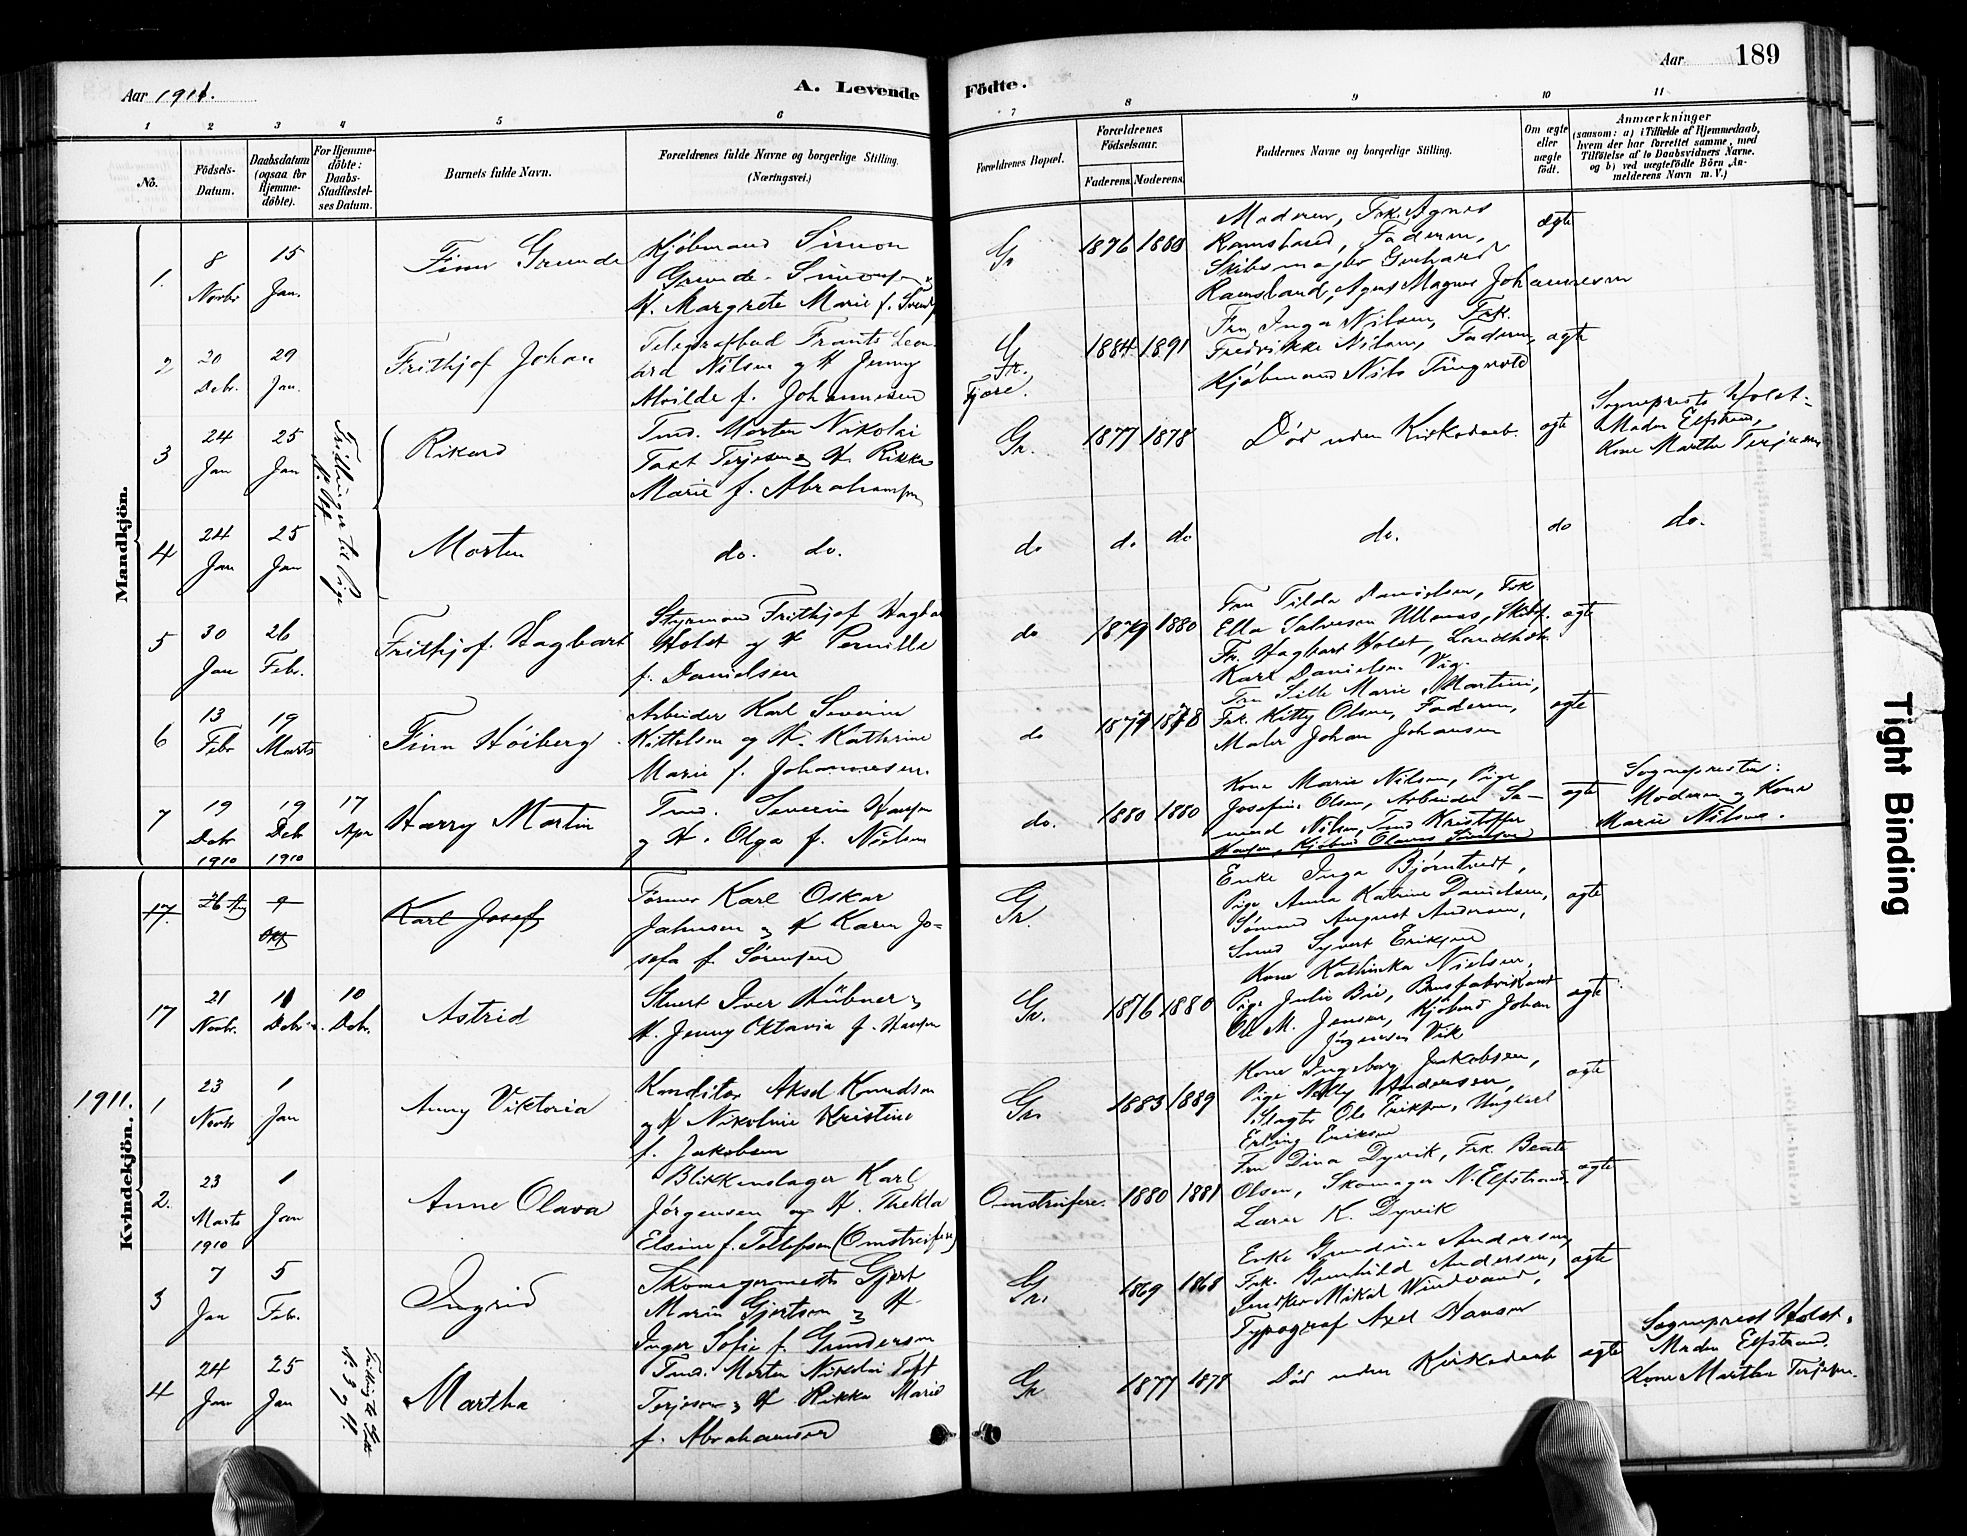 Aar 1911.
A. Levende Födte.
Aar 189
1 2 3 4 5 6 7 8 9 10 11
No.
Födsels-Datum.
Daabsdatum (ogsaa for Hjemme-döbte).
For Hjemme-döbte: Daabs-Stadfæstel-ses Datum.
Barnets fulde Navn.
Forældrenes fulde Navne og borgerlige Stilling. (Næringsvei.)
Forældrenes Bopæl.
Forældrenes Födselsaar.
Faderens. Moderens.
Faddernes Navne og borgerlige Stilling.
Om ægte eller uægte födt.
Anmærkninger
(saasom: a) i Tilfælde af Hjemmedaab, hvem der har forrettet samme, med Tilföielse af to Daabsvidners Navne. og b) ved uægtefödte Börn An-melderens Navn m. V.)
Mandkjön.
1. 8 Novbr 15 Jan. Finn Grunde
Kjöbmand Simon
Grunde Simonsen og
H. Margrete Marie f. Svends
Gr 1876 1883
Moderen, Frk. Agnes
Ramsland, Faderen,
Skibsmægler Gerhard
Ramsland, Agent Magnus Johannesen
ægte
2 20 Debr. 29 Jan. Frithjof Johan
Telegrafbud Frants Leon-
ard Nilsen og H Jenny
Alvilde f. Johannesen
Gr. Fjære. 1884 1891
Fru Inga Nilsen, Frk.
Fredrikke Nilsen, Faderen,
Kjöbmand Nils Tingvold
ægte
3 24 Jan 25 Jan
Trillinger til Pige N. 4
Rikard
Tmd. Morten Nikolai
Toft Terjesen og H. Rikke
Marie f. Abrahamsen
Gr. 1877 1878
Död uden Kirkedaab.
ægte
Sogneprest Holst-
Madm Elfstrand,
Kone Martha Terjesen
4 24 Jan 25 Jan Morten
do. do. do do do do. do do.
5 30 Jan 26 Febr. Frithjof Hagbart
Styrmand Frithjof Hagbart
Holst og H Pernille
f. Danielsen
do 1879 1880
Fru Tilda Danielsen, Frk
Ella Salvesen Ullenes, Skibsf.
Fr. Hagbart Holst, Landhdl.
Karl Danielsen Vig.
ægte
6 13 Febr 19 Marts Finn Höiberg
Arbeider Karl Severin
Kittelsen og H. Kathrine
Marie f. Johannesen.
do 1877 1878
Fru Sille Marie Martini,
Frk. Kitty Olsen, Faderen,
Maler Johan Johansen
ægte
7 19 Debr 1910 19 Deb 1910 17 Apr Harry Martin
Tmd. Severin Hansen
og H. Olga f. Nilsen
do. 1880 1880
Kone Marie Nilsen, Pige
Josefine Olsen, Arbeider Sa-
muel Nilsen, Tmd Kristoffer
Hansen, Kjöbmd Olaus
ægte
Sognepresten:
Moderen og Kone
Marie Nilsen.
17. 26 Aug 9 Okt Karl Josef
Former Karl Oskar
Johnsen og H Karen Jo-
sefa f. Sörensen
Gr.
Enke Inga Björntvedt,
Pige Anna Katrine Danielsen,
Sömand August Andersen,
Smed Syvert Eriksen
ægte
17 21 Novbr. 11 Debr. 10 Debr. Astrid
Stuert Iver Hübner og
H. Jenny Oktavia f. Hansen
Gr. 1876 1880
Kone Kathinka Nielsen,
Pige Julie Bie, Brusfabrikant
Ole M. Jensen, Kjöbmd Johan
Jörgensen Vik
ægte
1911.
Kvindekjön.
1 23 Novbr 1 Jan Anny Viktoria
Konditor Aksel Knudsen
og H Nikoline Kristine
f. Jakobsen
Gr. 1883 1889
Kone Ingeborg Jakobsen,
Pige Nelly Andersen,
Slagter Ole Eriksen, Ungkarl
Erling Eriksen
ægte
2. 23 Marts 1910 1 Jan Anne Olava
Blikkenslager Karl
Jörgensen og H. Thekla
Elsine f. Tellefsen (Omstreifere)
Omstreifere. 1880 1881
Fru Dina Dyvik, Frk. Beate
Olsen, Skomager N. Elfstrand
Lærer K. Dyvik
ægte
3 7 Jan 5 Febr. Ingrid
Skomagermester Gjert
Marin Gjertsen og H
Inger Sofie f. Gundersen
Gr. 1869 1868
Enke Gundine Andersen,
Frk. Gunhild Andersen,
Snedker Mikal Windvand,
Typograf Axel Hansen
ægte
4 24 Jan 25 Jan
Trilling til Gutt N. 3 og 4.
Martha
Tmd. Morten Nikolai Toft
Terjesen og H Rikke Marie
f. Abrahamsen
Gr 1877 1878
Död uden Kirkedaab
ægte
Sogneprest Holst.
Madm Elfstrand.
Kone Martha Terjesen.
Tight Binding